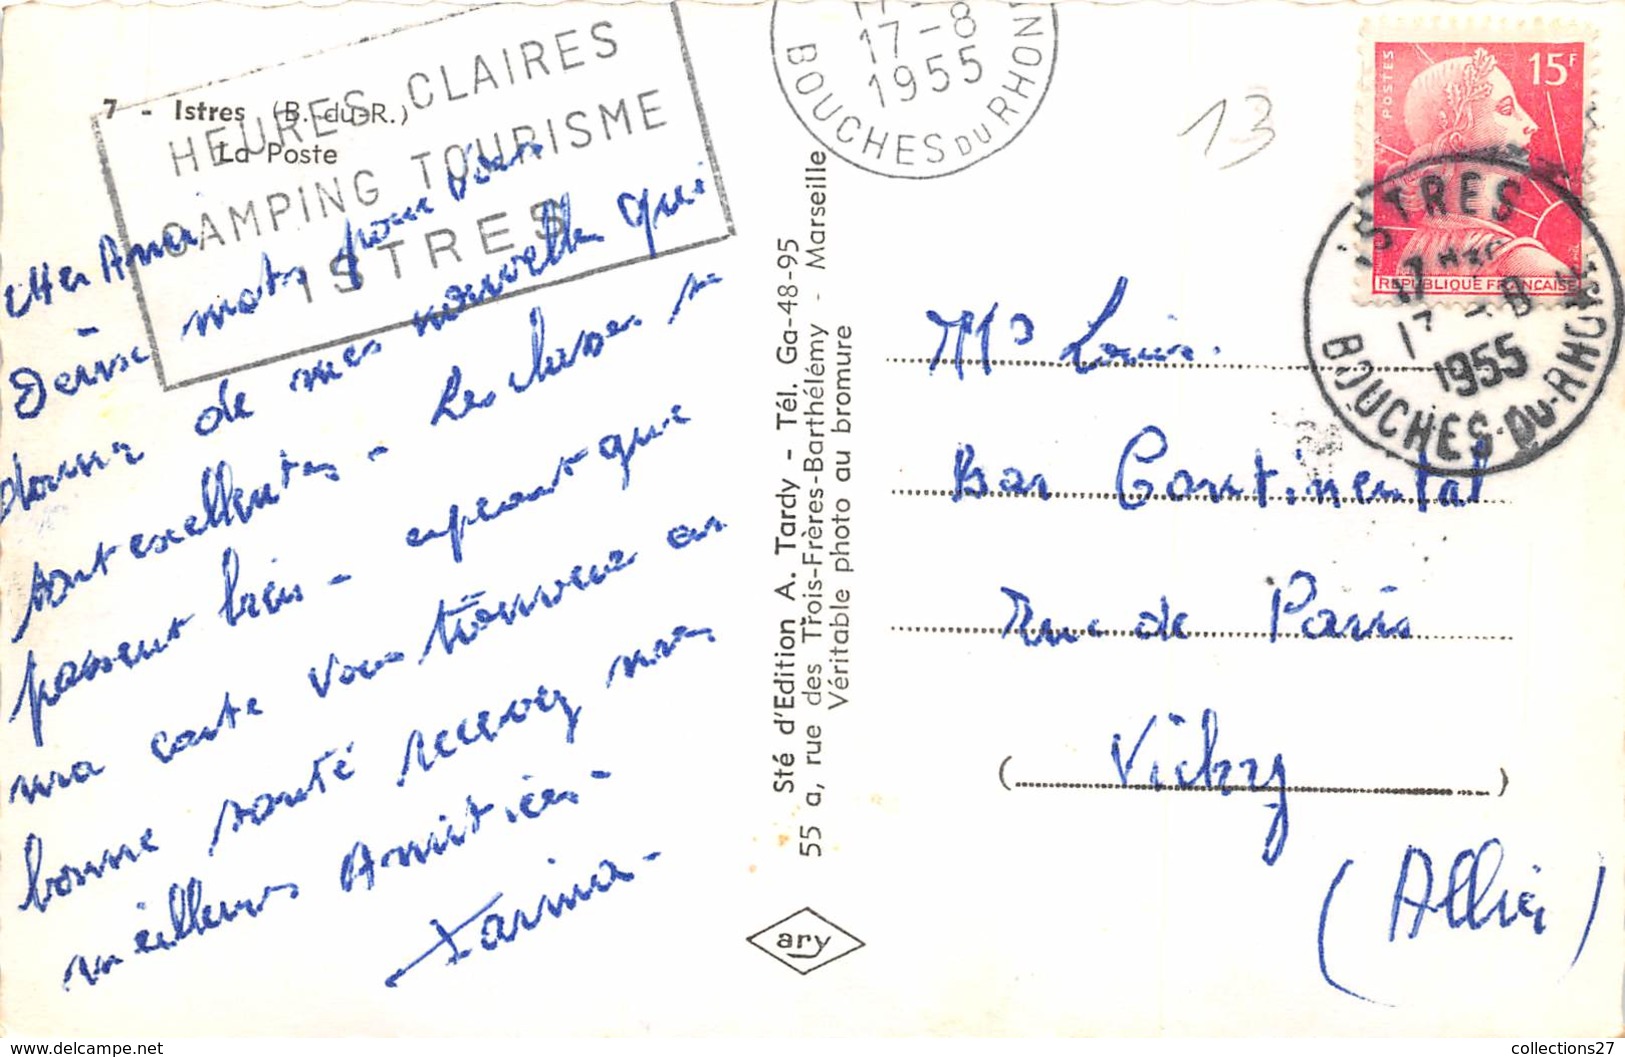 7 - Istres (B.-du-R.)
La Poste
HEURES CLAIRES
CAMPING TOURISME
ISTRES
17-8
1955
BOUCHES DU RHONE
13
POSTES
15F
REPUBLIQUE FRANCAISE
ISTRES
17
17-8
1955
BOUCHES-DU-RHONE
Cher Ami
mots pour vous
donner de mes nouvelles qui
sont excellentes - Les choses se
passent bien - espérant que
ma carte vous trouvera en
bonne santé recevez mes
meilleures Amitiés -
Sté d'Edition A. Tardy - Tél. Ga-48-95
55 a, rue des Trois-Frères-Barthélémy - Marseille
Véritable photo au bromure
ary
Mr Louis.
Bar Continental
Rue de Paris
(Vichy)
(Allier)
collections27